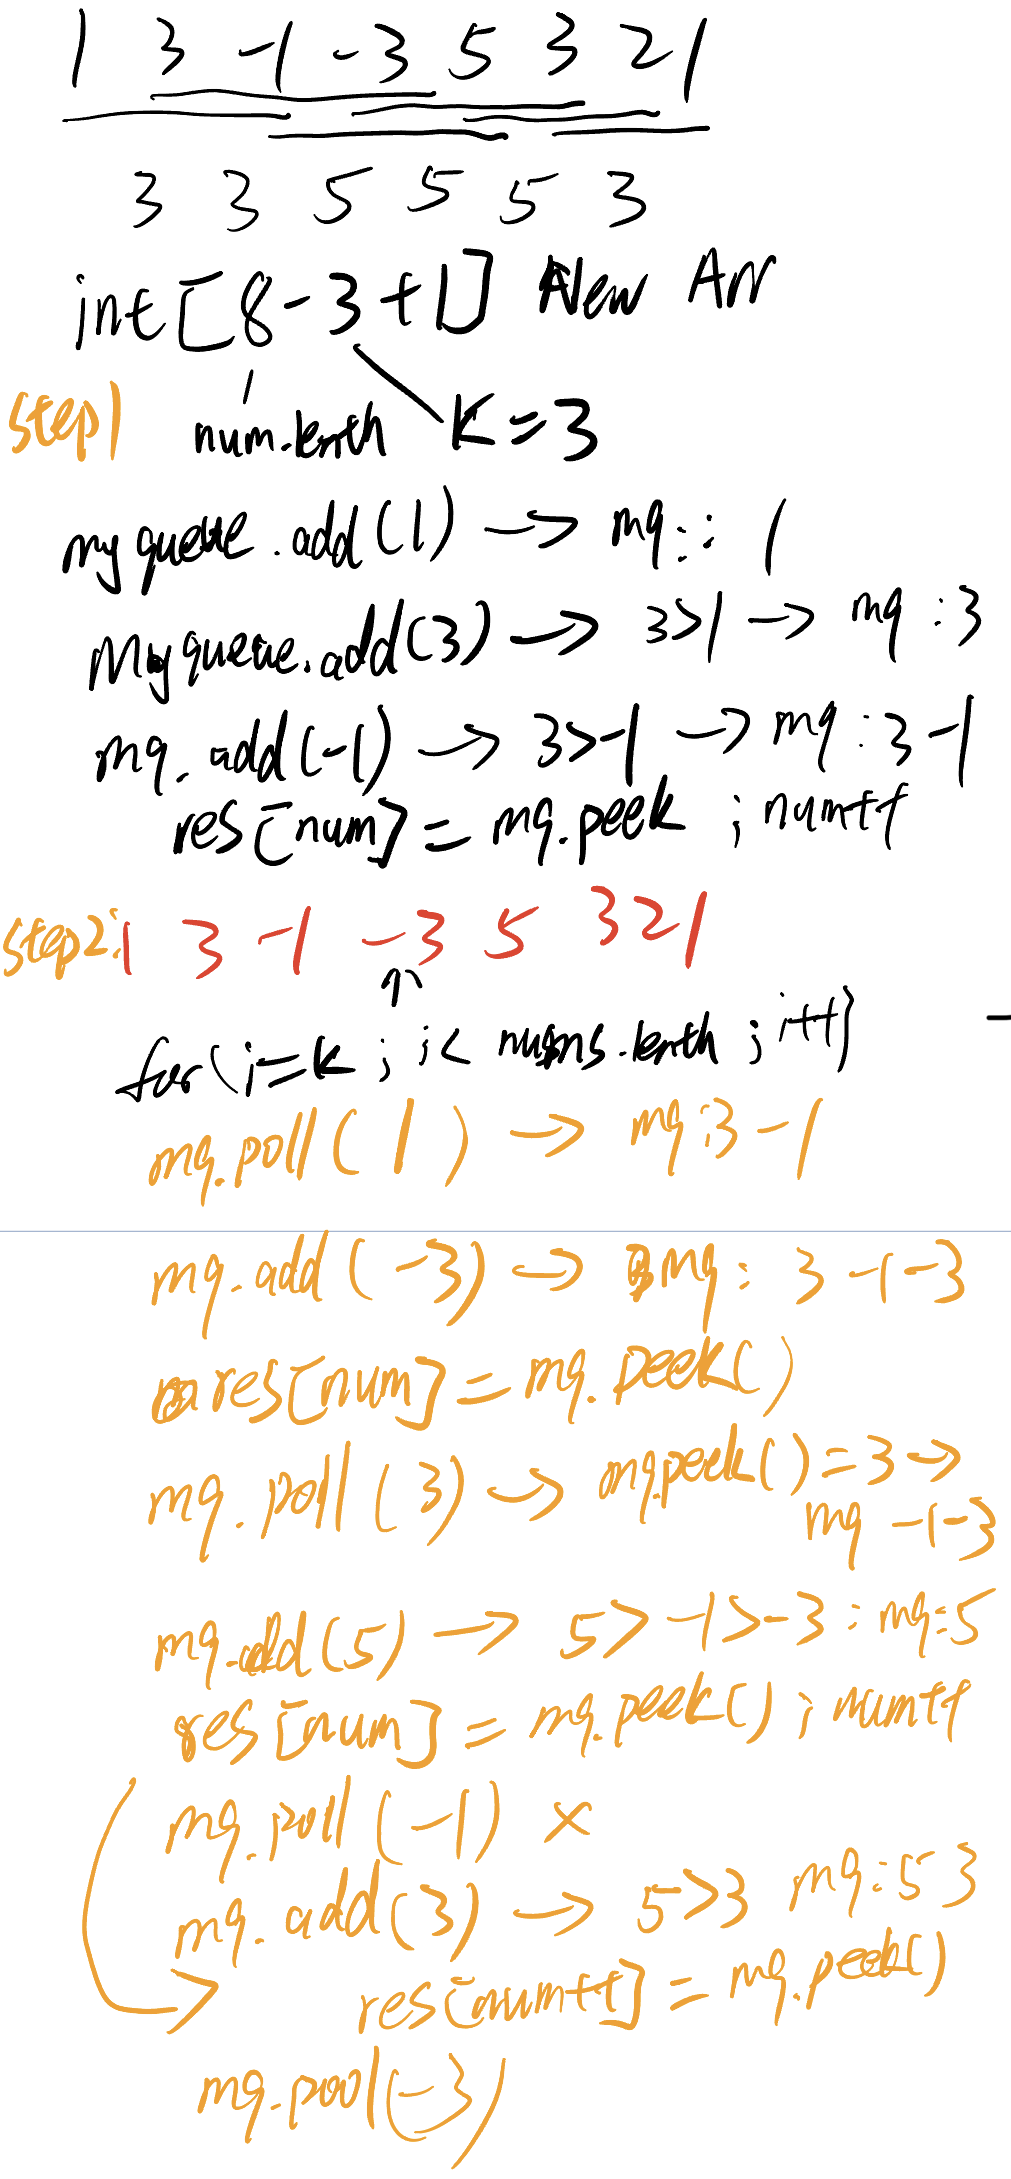 1 3 -1 -3 5 3 2 1
3 3 5 5 5 3
int[8-3+1] New Arr
step1 num.lenth K=3
myqueue.add(1) → mq: : 1
Myqueue.add(3) → 3>1 → mq :3
mq.add(-1) → 3>-1 → mq :3 -1
res[num] = mq.peek ; num++
step2: 1 3 -1 -3 5 3 2 1
↑
for(i=k ; i< nums.lenth ; i++)
mq.poll( 1 ) → mq:3 -1
mq.add (-3) → mq: 3 -1 -3
res[num] = mq.peek()
mq.poll (3) → mq.peek()=3 →
mq -1-3
mq.add(5) → 5> -1>-3 : mq:5
res[num] = mq.peek() ; num++
mq.poll (-1) ×
mq.add(3) → 5>3 mq:5 3
res[num++] = mq.peek()
mq.pool(-3)